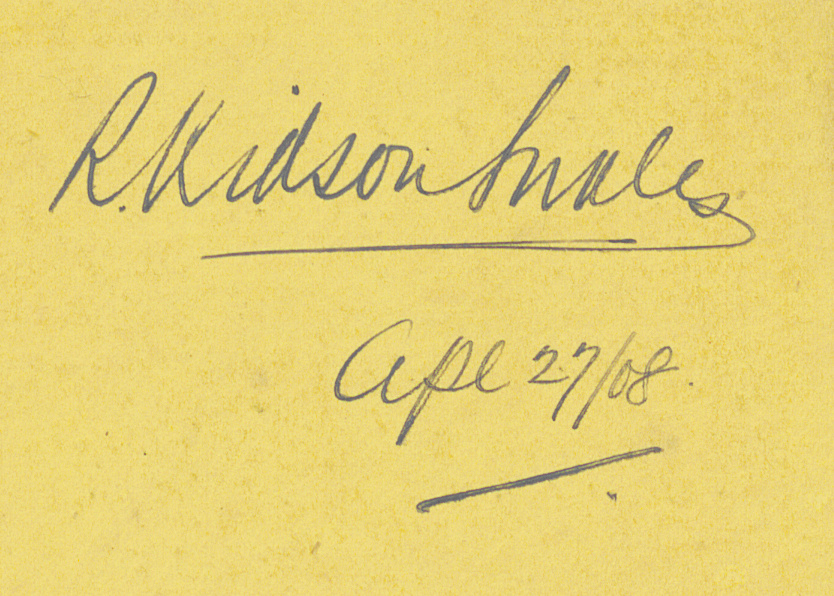 R. Kidson Smales
Apl 27/08.